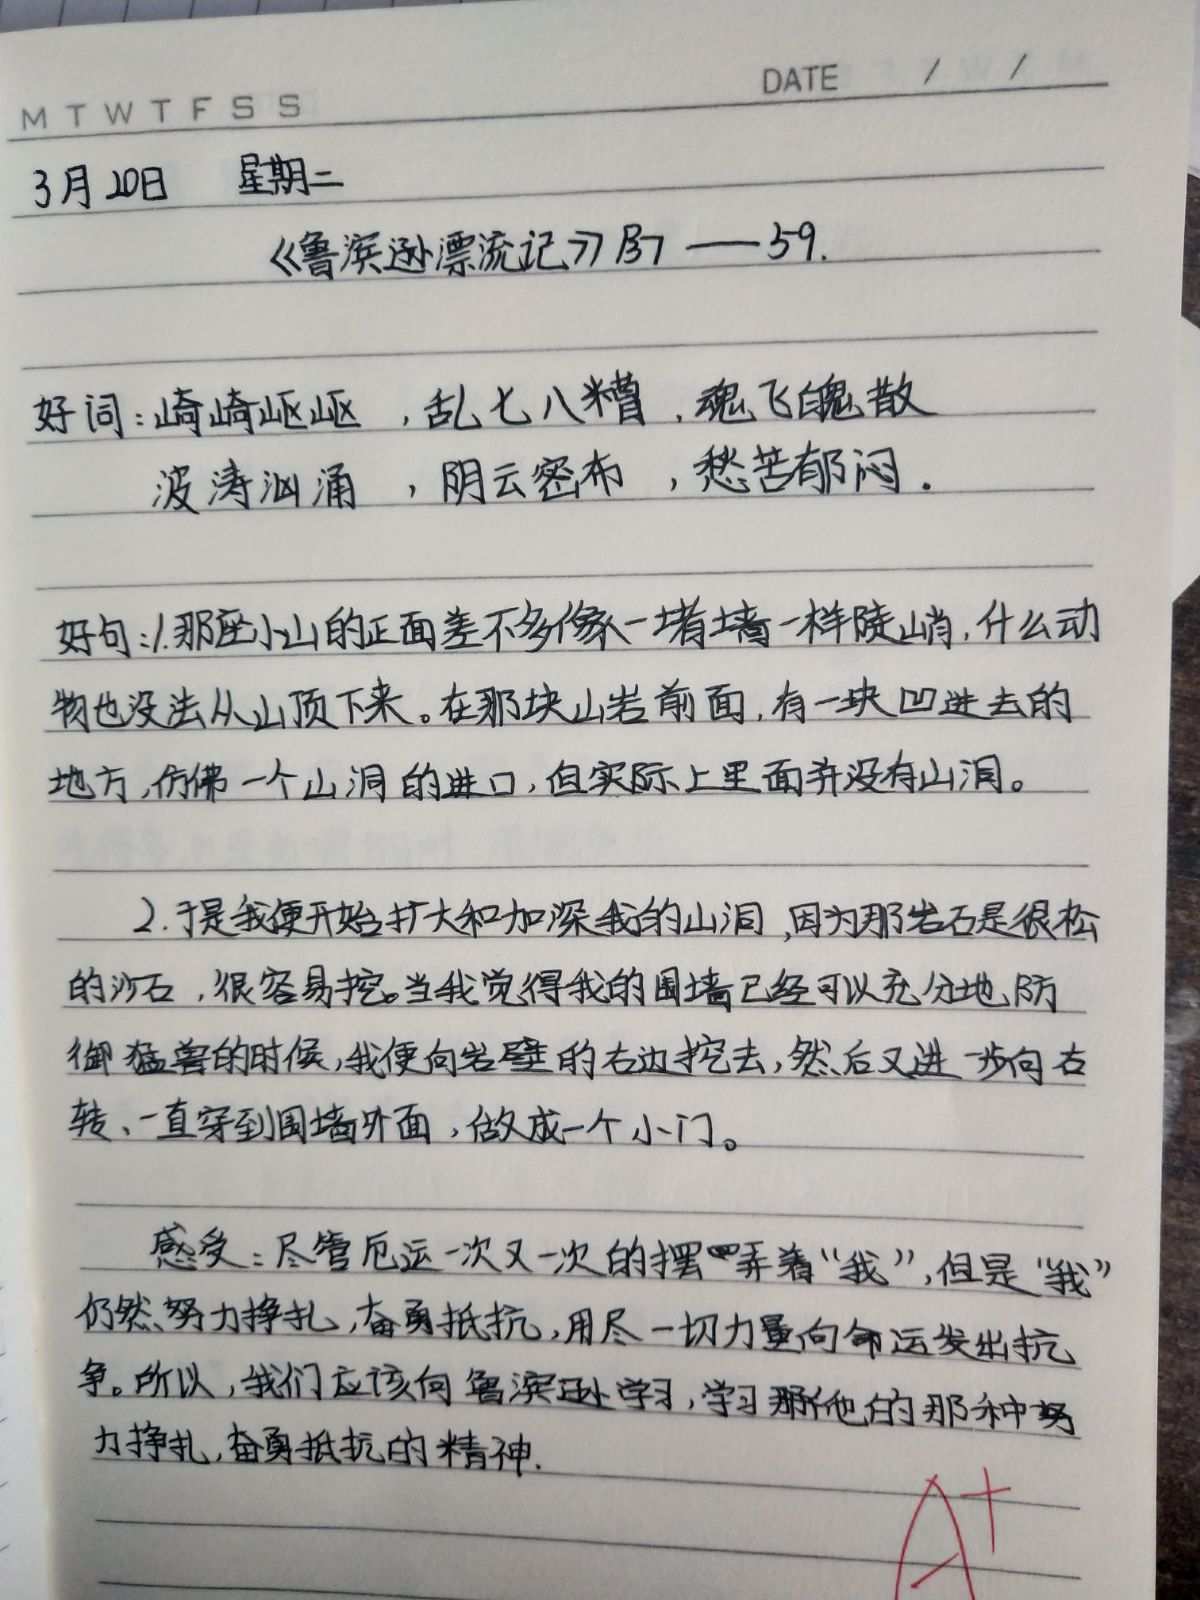 DATE / /
M T W T F S S
3月20日 星期二
《鲁滨逊漂流记》P37——59.
好词:崎崎岖岖,乱七八糟,魂飞魄散
波涛汹涌,阴云密布,愁苦郁闷.
好句:1.那座小山的正面差不多像一堵墙一样陡峭,什么动
物也没法从山顶下来。在那块山岩前面,有一块凹进去的
地方,仿佛一个山洞的进口,但实际上里面并没有山洞。
2.于是我便开始扩大和加深我的山洞,因为那岩石是很松
的沙石,很容易挖。当我觉得我的围墙已经可以充分地防
御猛兽的时候,我便向岩壁的右边挖去,然后又进一步向右
转、一直穿到围墙外面,做成一个小门。
感受:尽管厄运一次又一次的摆弄着“我”,但是“我”
仍然努力挣扎,奋勇抵抗,用尽一切力量向命运发出抗
争。所以,我们应该向鲁滨逊学习,学习他的那种努
力挣扎,奋勇抵抗的精神.
A+